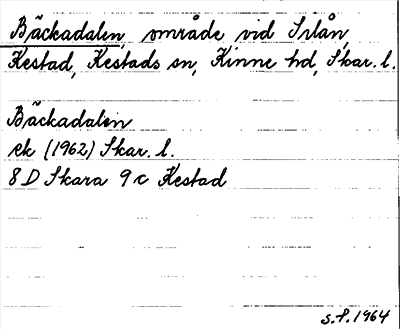 Bäckadalen, område vid Svlån,
Kestad, Kestads sn, Kinne hd, Skar. l.
Bäckadalen
ek (1962) Skar. l.
8 D Skara 9 c Kestad
S.P. 1964